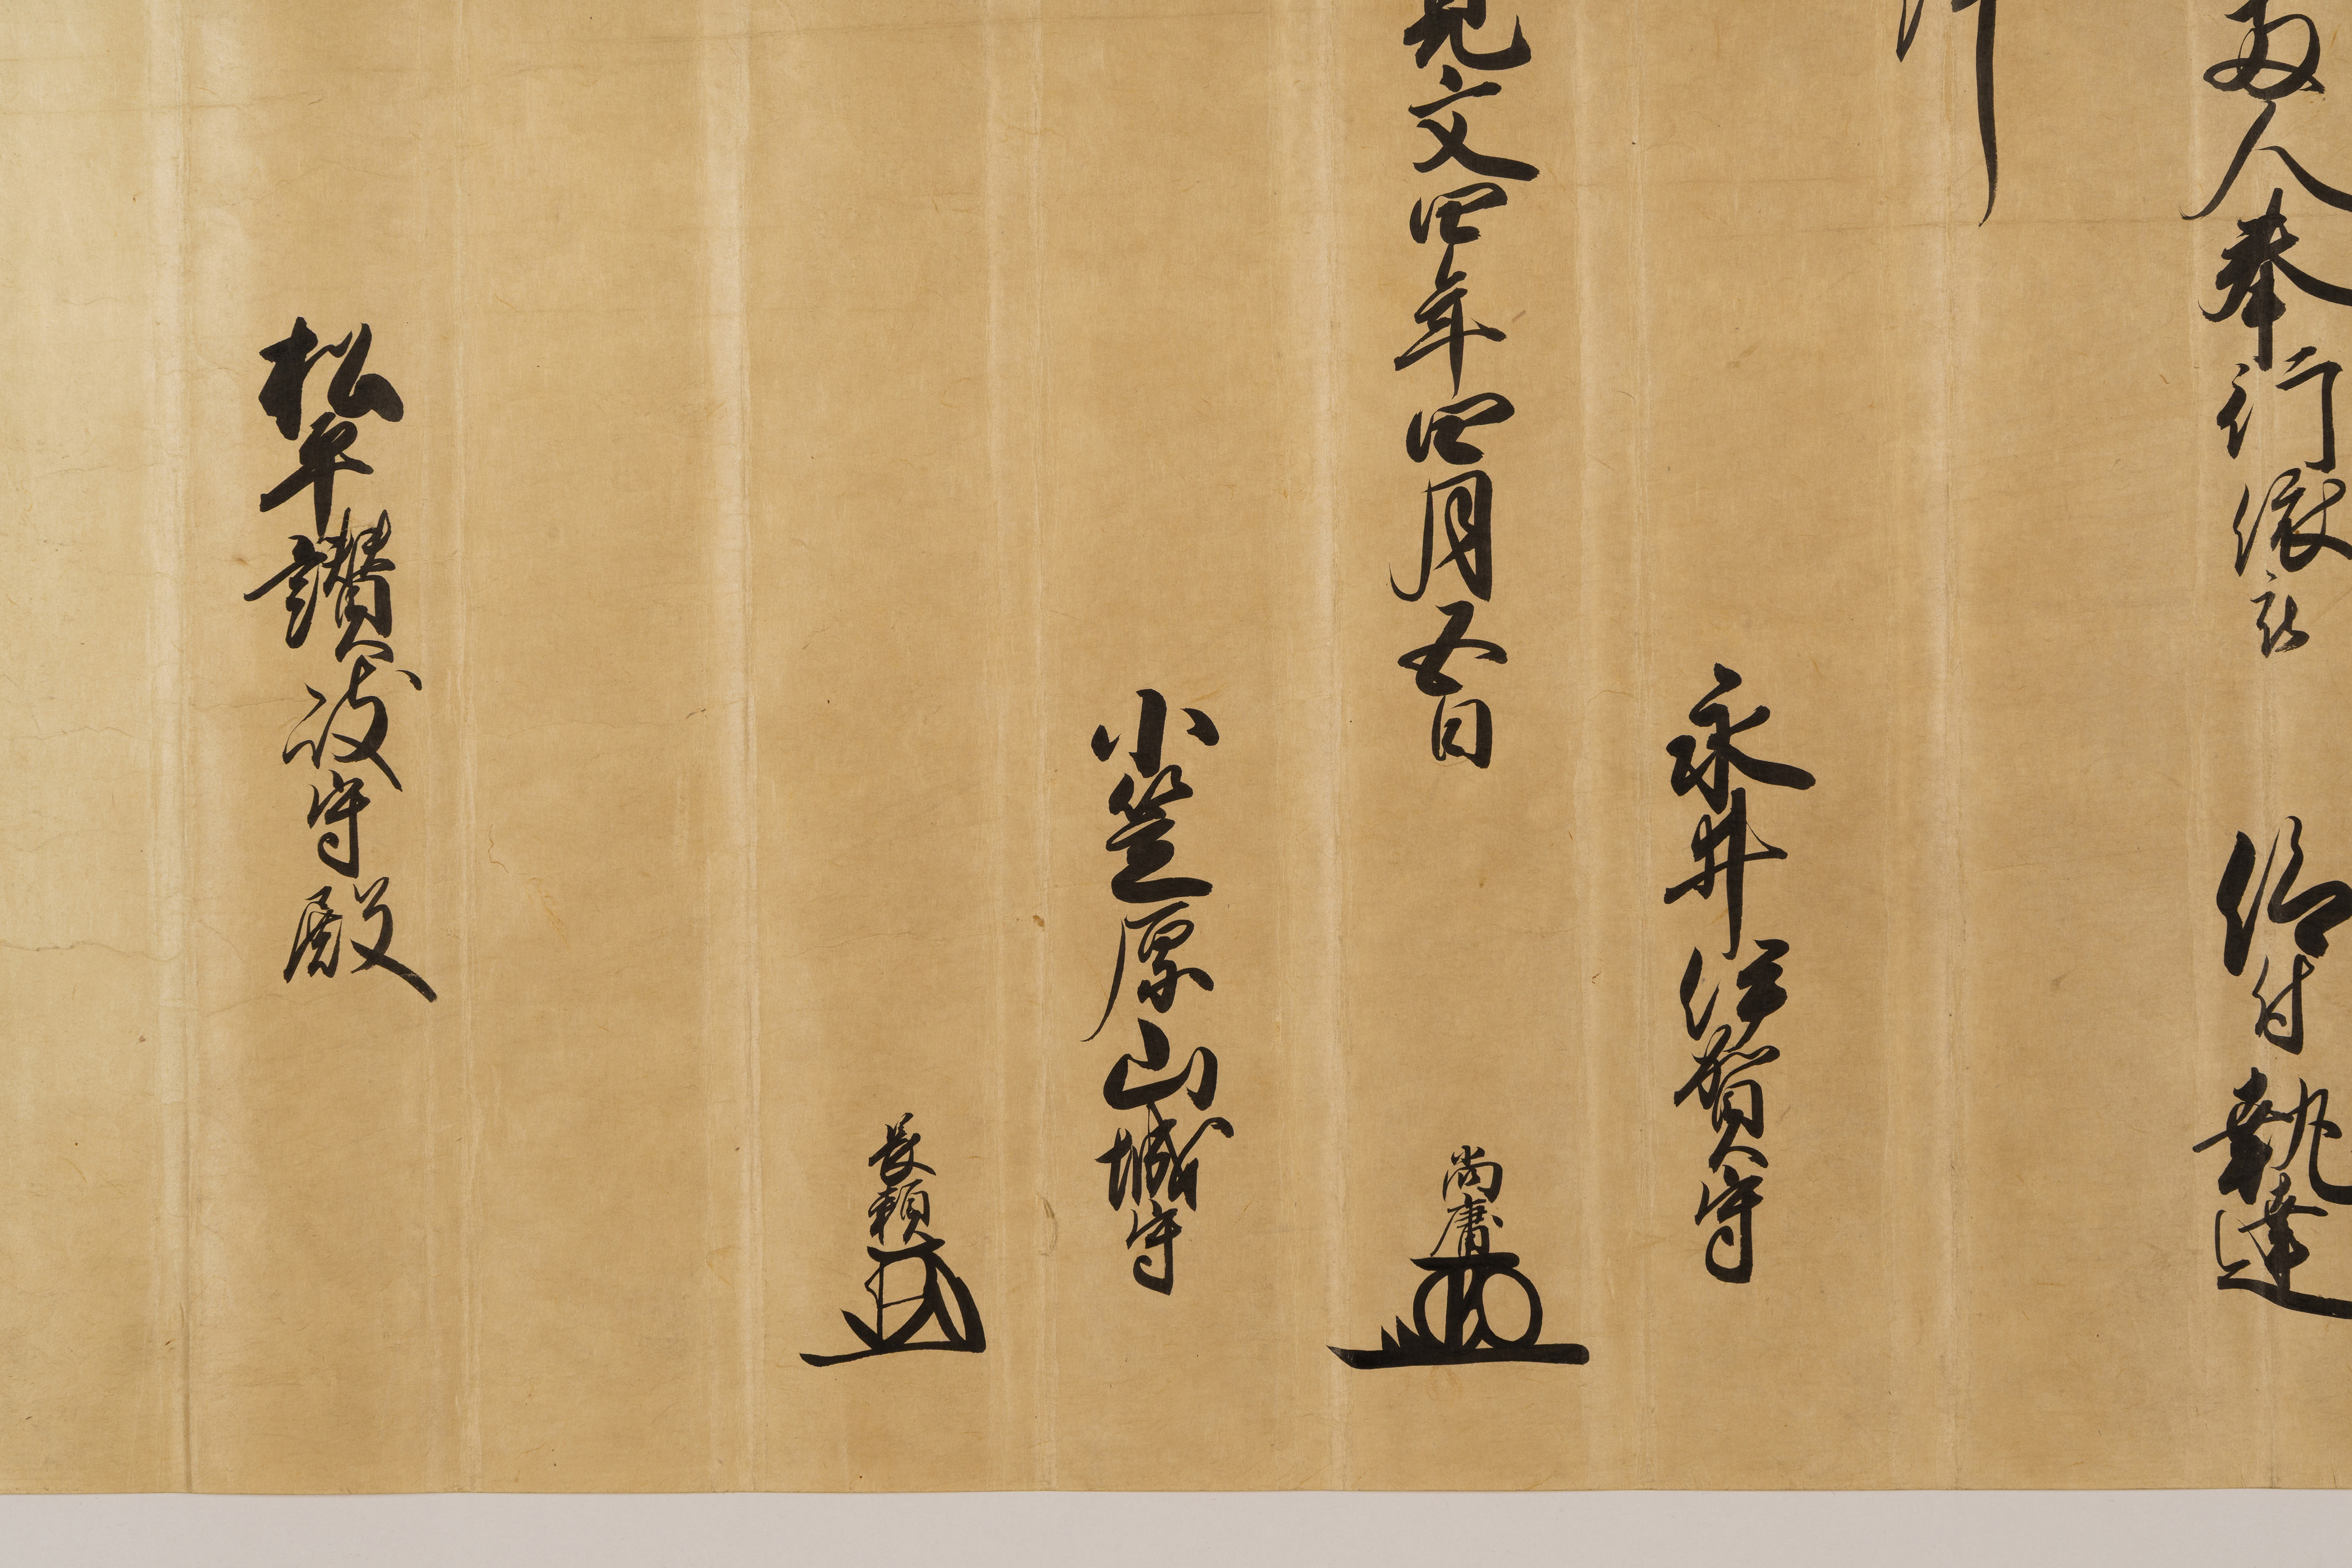 両人奉行依被 仰付執達
件
永井伊賀守
尚庸
寛文四年四月五日
小笠原山城守
長頼
松平讃岐守殿